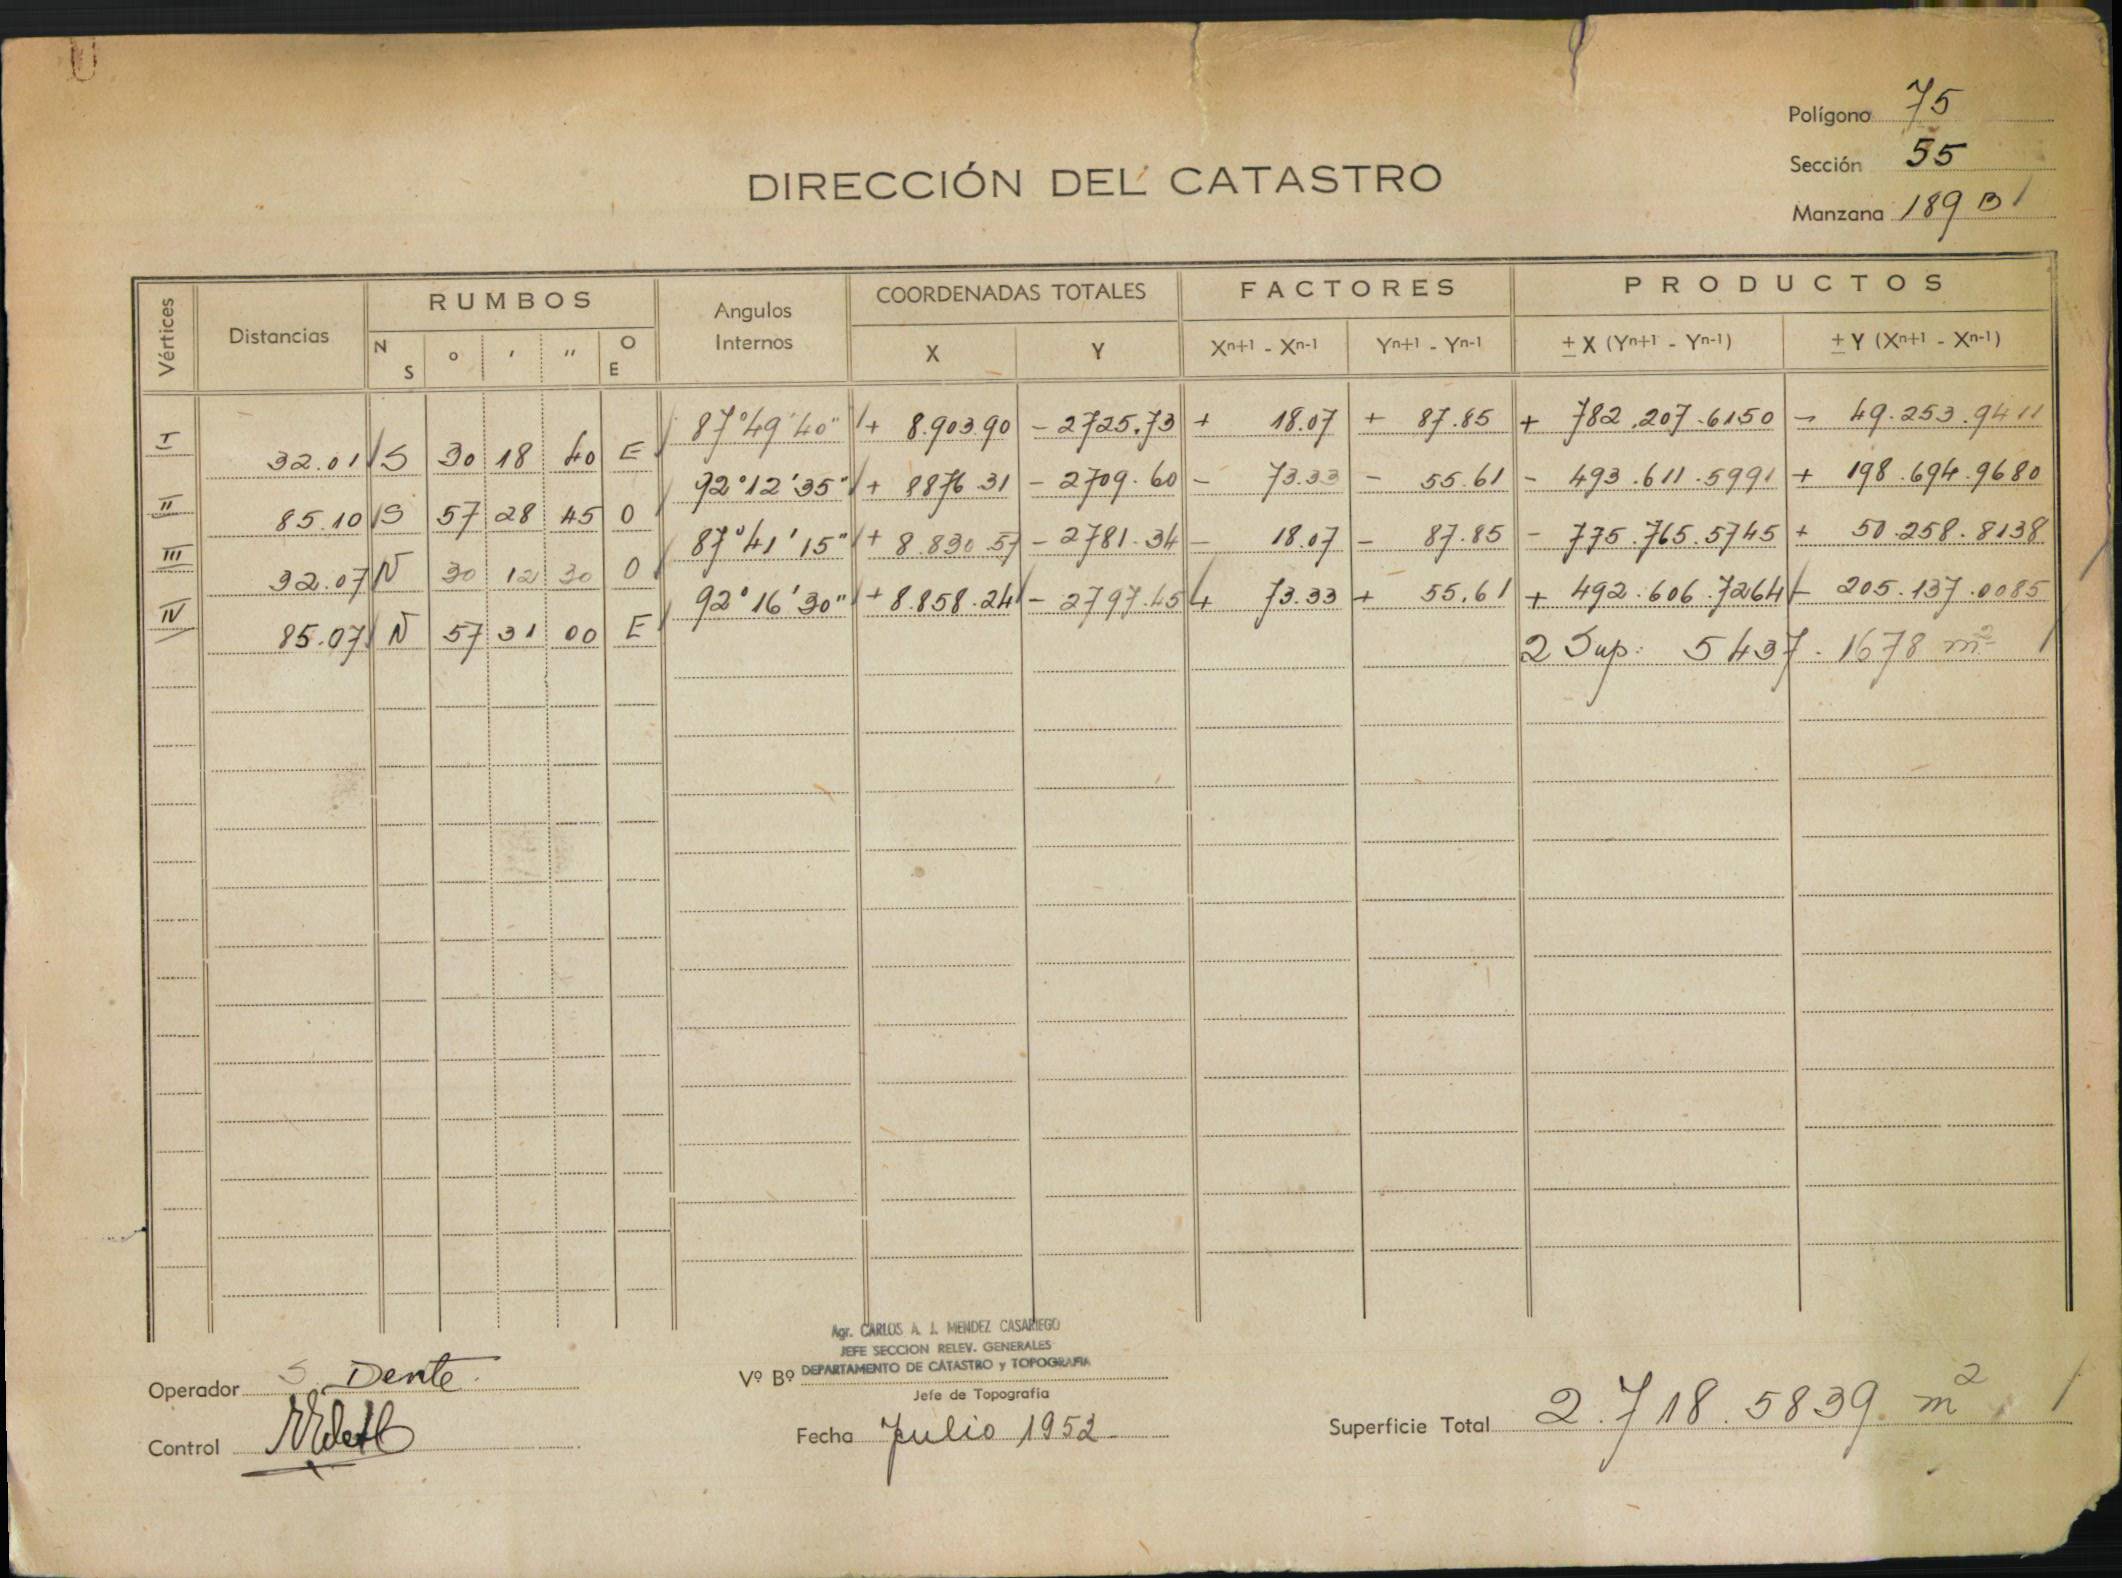 Polígono 75
Sección 55
Manzana 189 B
DIRECCIÓN DEL CATASTRO
Vértices Distancias RUMBOS Angulos Internos COORDENADAS TOTALES FACTORES PRODUCTOS
N S o ' " O E X Y Xn+1 - Xn-1 Yn+1 - Yn-1 ± X (Yn+1 - Yn-1) ± Y (Xn+1 - Xn-1)
87°49'40" + 8.903.90 - 2725.73 + 18.07 + 87.85 + 782.207.6150 - 49.253.9411
I 32.01 S 30 18 40 E
92°12'35" + 8876.31 - 2709.60 - 73.33 - 55.61 - 493.611.5991 + 198.694.9680
II 85.10 S 57 28 45 O
87°41'15" + 8.830.57 - 2781.34 - 18.07 - 87.85 - 775.765.5745 + 50.258.8138
III 32.07 N 30 12 30 O
92°16'30" + 8.858.24 - 2797.45 + 73.33 + 55.61 + 492.606.7264 - 205.137.0085
IV 85.07 N 57 31 00 E
2 Sup: 5437.1678 m2
Agr. CARLOS A. J. MENDEZ CASARIEGO
JEFE SECCION RELEV. GENERALES
Vº Bº DEPARTAMENTO DE CATASTRO y TOPOGRAFIA
Jefe de Topografía
Operador S. Dente
Control
Fecha Julio 1952
Superficie Total 2.718.5839 m2